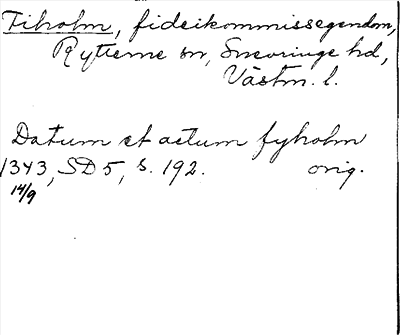 Fiholm, fideikommissegendom,
Rytterne sn, Snevringe hd,
Västm. l.
Datum et actum fyholm
1343, SD 5, s. 192. orig.
14/9